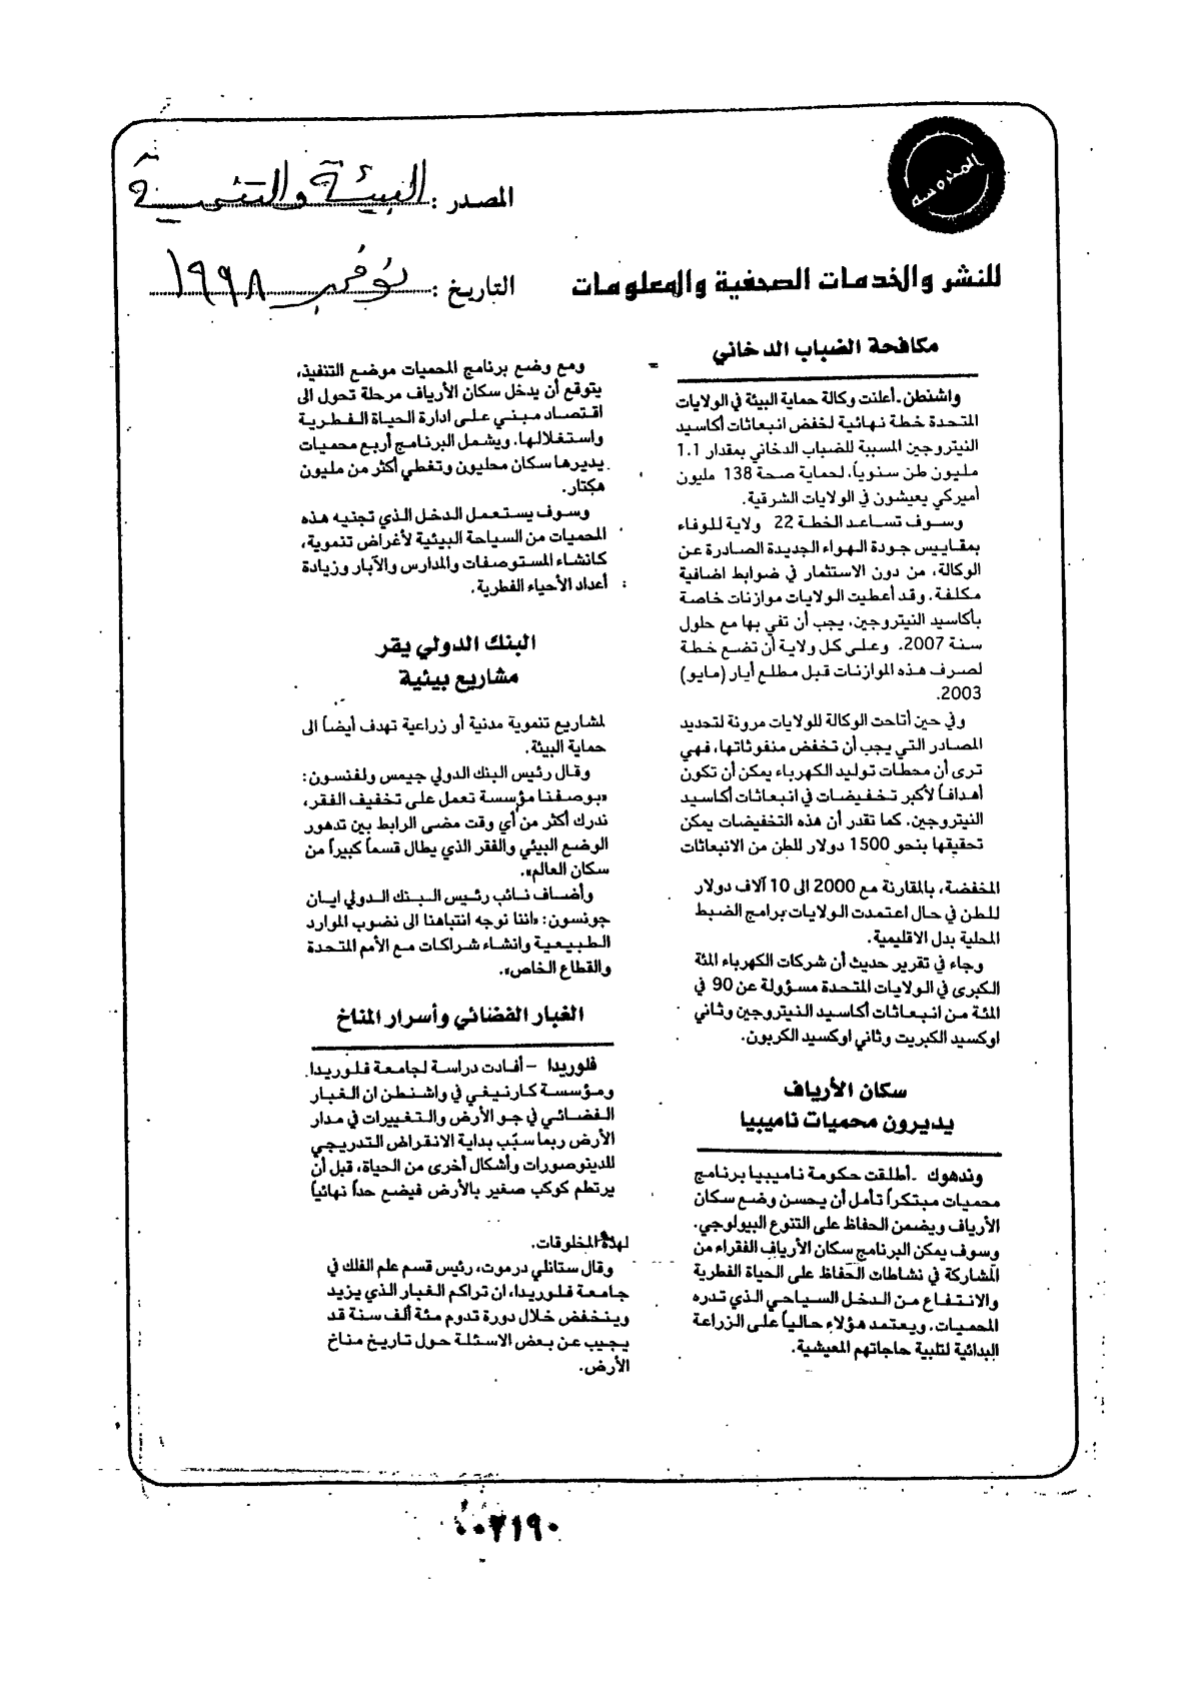 المصدر : البيئة والتنمية
للنشر والخدمات الصحفية والمعلومات
التاريخ : نوفمبر ١٩٩٨
مكافحة الضباب الدخاني
واشنطن ـ أعلنت وكالة حماية البيئة في الولايات
المتحدة خطة نهائية لخفض انبعاثات أكاسيد
النيتروجين المسببة للضباب الدخاني بمقدار 1.1
مليون طن سنوياً، لحماية صحة 138 مليون
أميركي يعيشون في الولايات الشرقية.
وسوف تساعد الخطة 22 ولاية للوفاء
بمقاييس جودة الهواء الجديدة الصادرة عن
الوكالة، من دون الاستثمار في ضوابط اضافية
مكلفة. وقد أعطيت الولايات موازنات خاصة
بأكاسيد النيتروجين، يجب أن تفي بها مع حلول
سنة 2007. وعلى كل ولاية أن تضع خطة
لصرف هذه الموازنات قبل مطلع أيار (مايو)
2003.
وفي حين أتاحت الوكالة للولايات مرونة لتحديد
المصادر التي يجب أن تخفض منفوثاتها، فهي
ترى أن محطات توليد الكهرباء يمكن أن تكون
أهدافاً لأكبر تخفيضات في انبعاثات أكاسيد
النيتروجين. كما تقدر أن هذه التخفيضات يمكن
تحقيقها بنحو 1500 دولار للطن من الانبعاثات
المخفضة، بالمقارنة مع 2000 الى 10 آلاف دولار
للطن في حال اعتمدت الولايات برامج الضبط
المحلية بدل الاقليمية.
وجاء في تقرير حديث أن شركات الكهرباء المئة
الكبرى في الولايات المتحدة مسؤولة عن 90 في
المئة من انبعاثات أكاسيد النيتروجين وثاني
اوكسيد الكبريت وثاني اوكسيد الكربون.
سكان الأرياف
يديرون محميات ناميبيا
وندهوك ـ أطلقت حكومة ناميبيا برنامج
محميات مبتكراً تأمل أن يحسن وضع سكان
الأرياف ويضمن الحفاظ على التنوع البيولوجي.
وسوف يمكن البرنامج سكان الأرياف الفقراء من
المشاركة في نشاطات الحفاظ على الحياة الفطرية
والانتفاع من الدخل السياحي الذي تدره
المحميات. ويعتمد هؤلاء حالياً على الزراعة
البدائية لتلبية حاجاتهم المعيشية.
ومع وضع برنامج المحميات موضع التنفيذ،
يتوقع أن يدخل سكان الأرياف مرحلة تحول الى
اقتصاد مبني على ادارة الحياة الفطرية
واستغلالها. ويشمل البرنامج أربع محميات
يديرها سكان محليون وتغطي أكثر من مليون
هكتار.
وسوف يستعمل الدخل الذي تجنيه هذه
المحميات من السياحة البيئية لأغراض تنموية،
كانشاء المستوصفات والمدارس والآبار وزيادة
أعداد الأحياء الفطرية.
البنك الدولي يقر
مشاريع بيئية
لمشاريع تنموية مدنية أو زراعية تهدف أيضاً الى
حماية البيئة.
وقال رئيس البنك الدولي جيمس ولفنسون:
«بوصفنا مؤسسة تعمل على تخفيف الفقر،
ندرك أكثر من أي وقت مضى الرابط بين تدهور
الوضع البيئي والفقر الذي يطال قسماً كبيراً من
سكان العالم».
وأضاف نائب رئيس البنك الدولي ايان
جونسون: «اننا نوجه انتباهنا الى نضوب الموارد
الطبيعية وانشاء شراكات مع الأمم المتحدة
والقطاع الخاص».
الغبار الفضائي وأسرار المناخ
فلوريدا – أفادت دراسة لجامعة فلوريدا
ومؤسسة كارنيغي في واشنطن ان الغبار
الفضائي في جو الأرض والتغييرات في مدار
الأرض ربما سبّب بداية الانقراض التدريجي
للديتوصورات وأشكال أخرى من الحياة، قبل أن
يرتطم كوكب صغير بالأرض فيضع حداً نهائياً
لهذه المخلوقات.
وقال ستانلي درموت، رئيس قسم علم الفلك في
جامعة فلوريدا، ان تراكم الغبار الذي يزيد
وينخفض خلال دورة تدوم مئة ألف سنة قد
يجيب عن بعض الاسئلة حول تاريخ مناخ
الأرض.